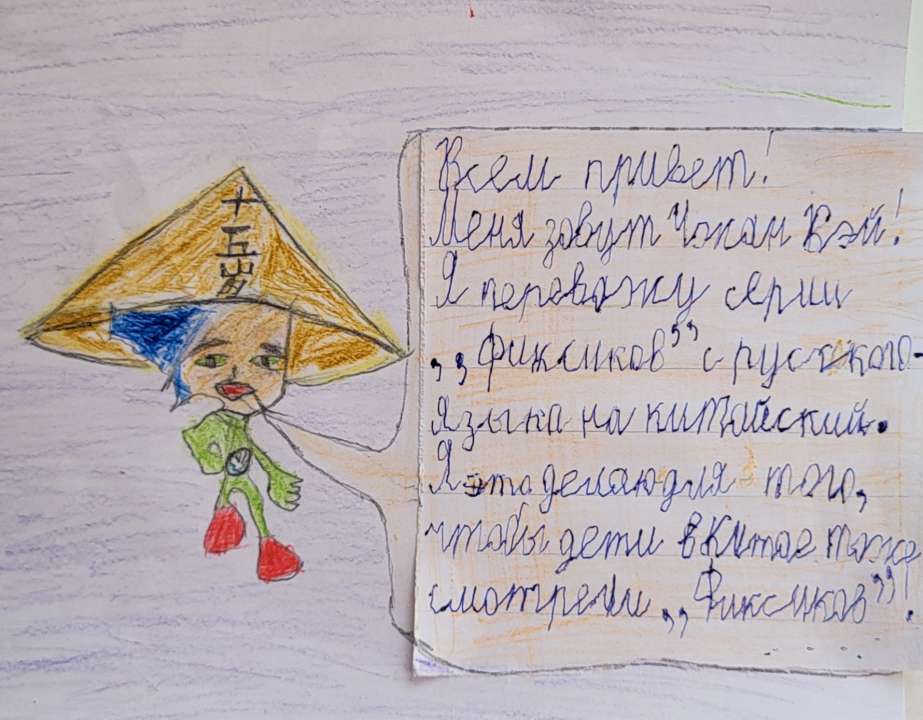 十五岁
Всем привет!
Меня зовут Чжан Вэй!
Я перевожу серии
,,Фиксиков" с русского-
языка на китайский.
Я это делаю для того,
чтобы дети в Китае тоже
смотрели ,,Фиксиков"!